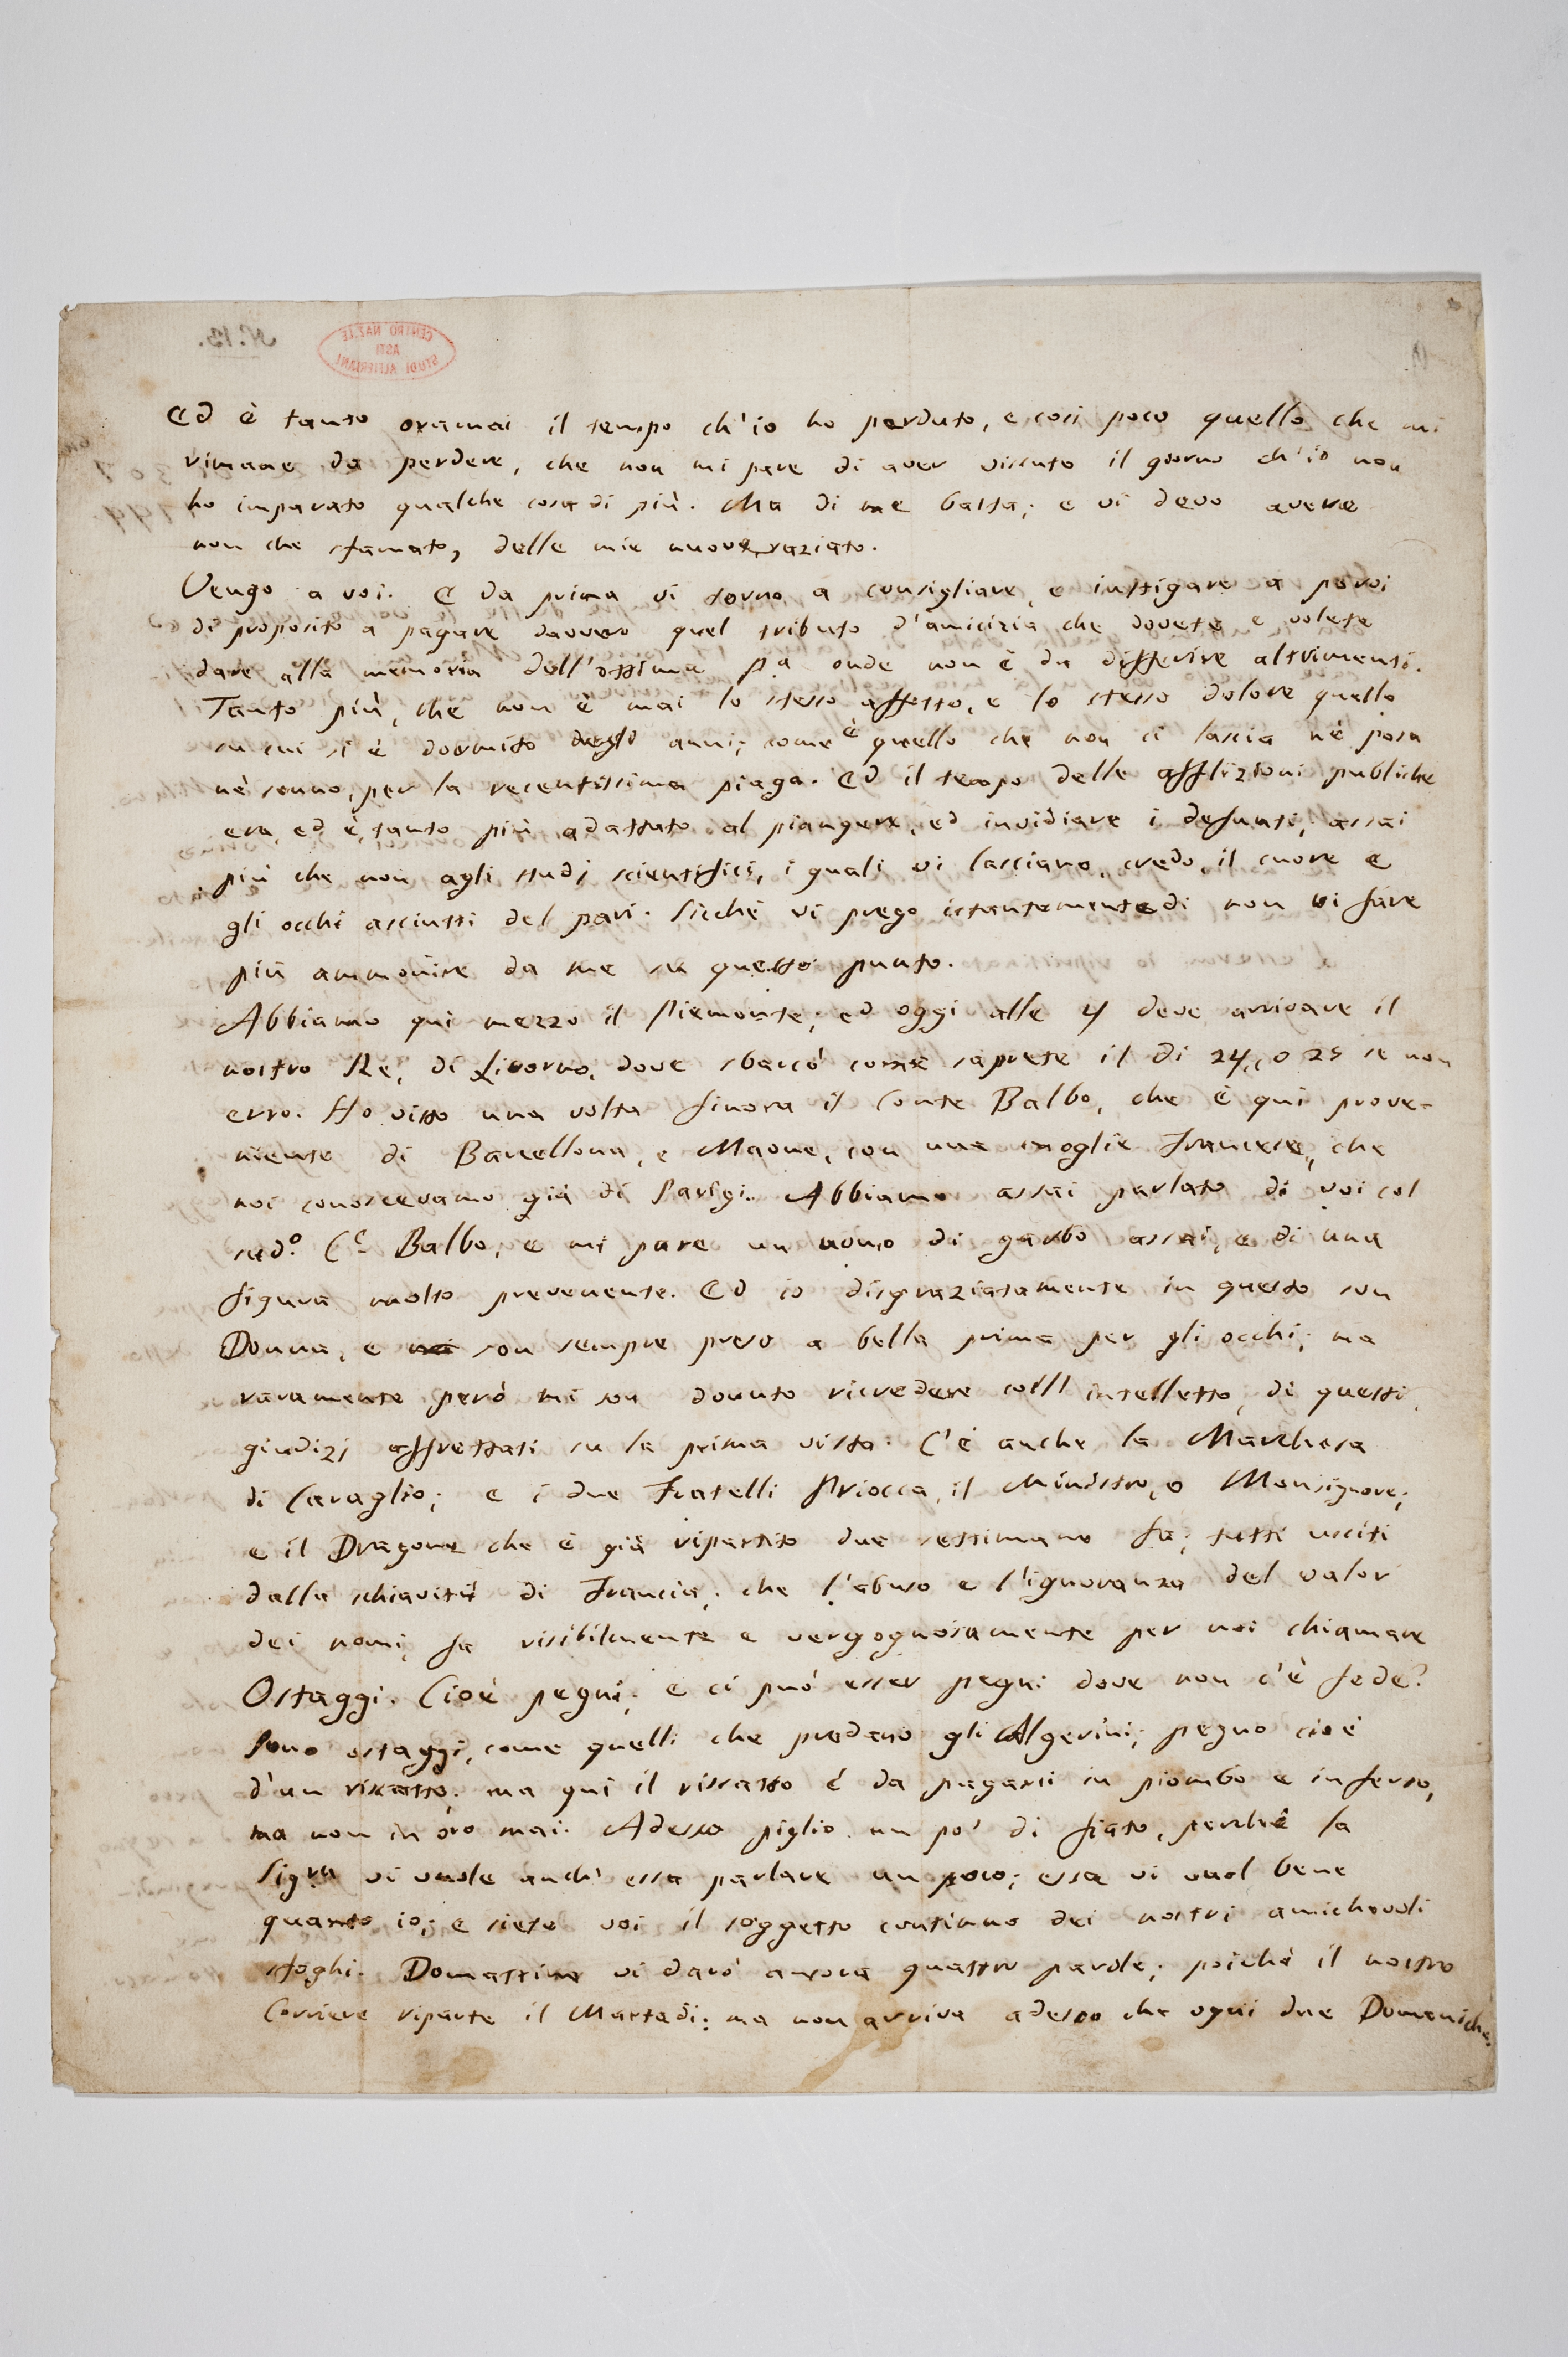 Ed è tanto oramai il tempo ch'io ho perduto, e così poco quello che mi
rimane da perdere, che non mi pare di aver vissuto il giorno ch'io non
ho imparato qualche cosa di più. Ma di me basta; e vi devo avere
non che sfamato, delle mie nuove, saziato.
Vengo a voi. E da prima vi torno a consigliare, e instigare a porvi
di proposito a pagare davvero quel tributo d'amicizia che dovete e volete
dare alla memoria dell'ottima P.a onde non è da differire altrimenti.
Tanto più, che non è mai lo stesso affetto, e lo stesso dolore quello
su cui si è dormito degli anni; come è quello che non ci lascia nè posa
nè sonno, per la recentissima piaga. Ed il tempo delle afflizioni publiche
era, ed è, tanto più adattato al piangere, ed invidiare i defunti, assai
più che non agli studj scientifici, i quali vi lasciano, credo, il cuore e
gli occhi asciutti del pari. Sicchè vi prego istantemente di non vi fare
più ammonire da me su questo punto.
Abbiamo qui mezzo il Piemonte; ed oggi alle 4 deve arrivare il
nostro Re, di Livorno, dove sbarcò come saprete il dì 24, o 25 se non
erro. Ho visto una volta finora il Conte Balbo, che è qui prove-
niente di Barcellona, e Maone, con una moglie Francese, che
noi conoscevamo già di Parigi. Abbiamo assai parlato di voi col
sud.o C.e Balbo, e mi pare un uomo di garbo assai, e di una
figura molto prevenente. Ed io disgraziatamente in questo son
Donna, e son sempre preso a bella prima per gli occhi; ma
raramente però mi son dovuto ricredere coll intelletto, di questi
giudizj affrettati su la prima vista. C'è anche la Marchesa
di Caraglio; e i due Fratelli Priocca, il Ministro, o Monsignore;
e il Dragone che è già ripartito due settimane fa; tutti usciti
dalla schiavitù di Francia; che l'abuso e l'ignoranza del valor
dei nomi, fa risibilmente e vergognosamente per noi chiamare
Ostaggi. Cioè pegni; e ci può esser pegni dove non c'è fede?
Sono ostaggi, come quelli che predano gli Algerini; pegno cioè
d'un riscatto; ma qui il riscatto è da pagarsi in piombo e in ferro,
ma non in oro mai. Adesso piglio un po' di fiato, perchè la
Sig.ra vi vuole anch'essa parlare un poco; essa vi vuol bene
quanto io; e siete voi il soggetto continuo dei nostri amichevoli
sfoghi. Domattina vi darò ancora quattro parole; poichè il nostro
Corriere riparte il Martedì: ma non arriva adesso che ogni due Domeniche.